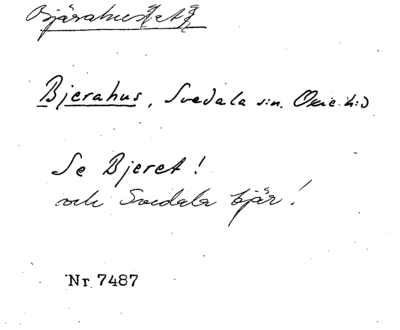 Bjärahuset
Bjerahus, Svedala sn. Oxie hd
Se Bjeret!
och Svedala bjär!
Nr 7487